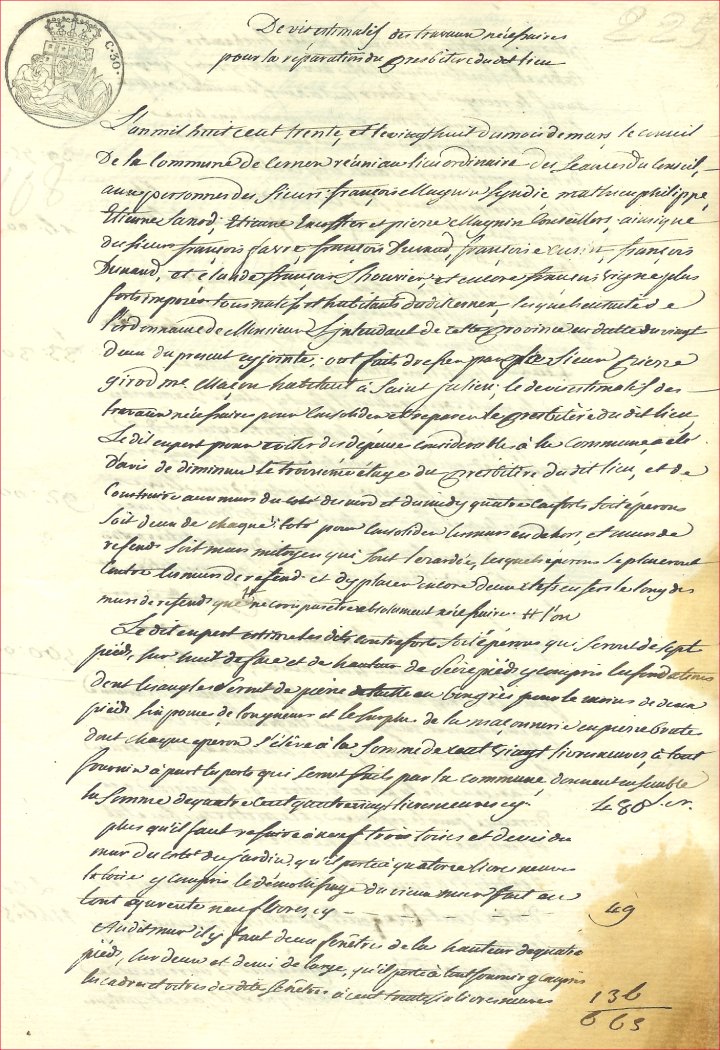 C. 30.
Devis estimatif des travaux nécéssaires
pour la réparation du presbitère du dit lieu
L'an mil huit cent trente, et le vingt huit du mois de mars le conseil
De la Commune de Cernex réuni au lieu ordinaire des séances du Conseil,
aux personnes des sieurs françois Magnin syndic, mathieu philippe,
Etienne et pierre Magnin Conseillers, ainsi que
des sieurs françois favre, françois Dunand, françois françois
Dunand, et claude françois et encore françois vigne plus
forts imposés tous natifs et habitants du dit Cernex, lesquels ensuite de
l'ordonnance de Monsieur L'intendant de cette province en datte du vingt
deux du present cy jointe, ont faits dresser par le sieur pierre
girod me. Maçon habitant à Saint julien le devis estimatif des
travaux nécéssaires pour Consolider et réparer le presbitère du dit lieu
Le dit expert pour eviter des dépenses considerables à la Commune a été
D'avis de diminuer le troisième étage du presbitère du dit lieu, et de
Construire aux murs du coté du nord et du midy quatre Caforts soit éperons
soit deux de chaque coté pour Consolider les murs en dehors, et murs de
refends soit murs mitoyens qui sont lezardés, lesquels éperons se placeront
Contre les murs de refend et d'y placer encore deux clefs en fer le long des
murs de refends que # reconnoissent absolument nécéssaire. # l'on
Le dit expert estime les dits contreforts soit éperons qui seront de sept
pieds, sur huit de face et de hauteur de seize pieds y compris les fondations
dont les angles seront de pierre de taille au Congrès pour le moins de deux
pieds six pouces de longueurs et le surplus de la maconnerie en pierre brute
dont chaque eperon s'élève à la somme de cent vingt livres neuves, à tout
fournir à part les ports qui seront faits par la commune donnent ensemble
la somme de quatre Cent quatre vingt livres neuves cy. 480 . n.
plus qu'il faut refaire à neuf trois toises et demi du
mur du coté du jardin, qu'il porte à quatorze livres neuves
la toise y compris le démolissage du vieux mur fait en
tout quarente neuf livres, cy 49
Au dit mur il y faut deux fenêtres de la hauteur de quatre
pieds, sur deux et demi de large, qu'il porte à tout fournir y compris
les cadres et vitres des dites fenêtres à cent trente six livres neuves 136
665